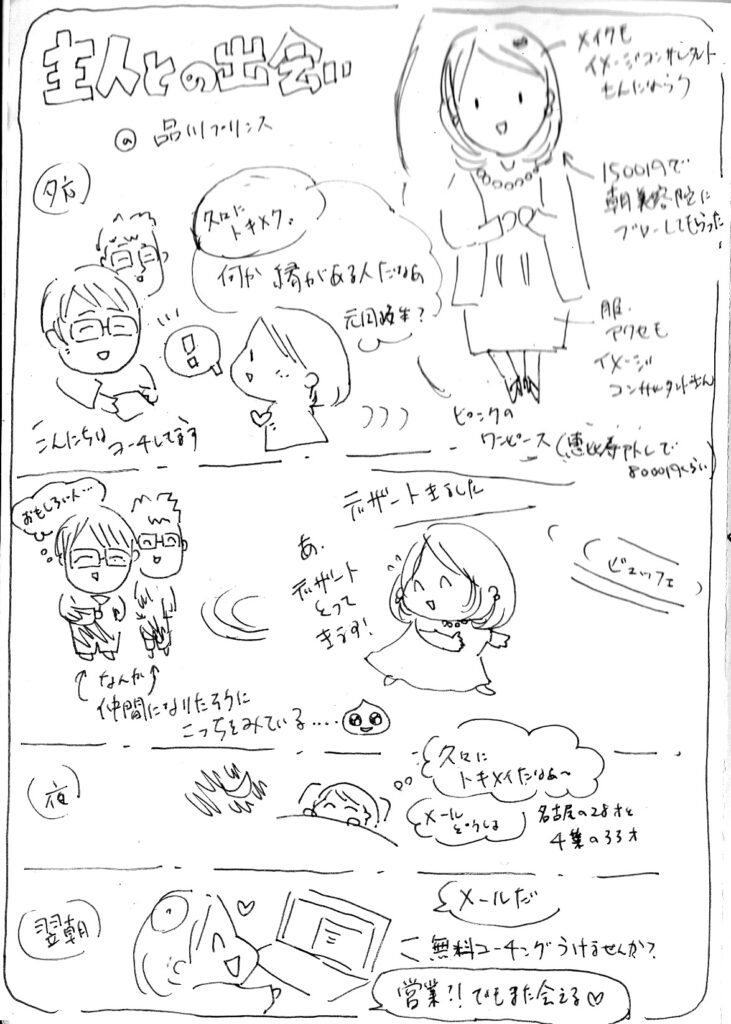 主人との出会い
@ 品川プリンス
メイクも
イメージコンサルタント
さんにならう
1500円で
朝美容院に
ブローしてもらった
服
アクセも
イメージ
コンサルタントさん
ピンクの
ワンピース
(恵比寿アトレで
80000円くらい)
夕方
久々に
トキメク。
何か縁がある人だなぁ
元同級生?
こんにちは コーチしてます
おもしろい人…
デザートきました
あ、
デザート
とって
きます!
ビュッフェ
なんか
仲間になりたそうに
こっちをみている....
夜
久々に
トキメイたなぁ〜
メール
どうしよ
名古屋の28才と
千葉の33才
翌朝
メールだ
無料コーチングうけませんか?
営業?!でもまた会える♡